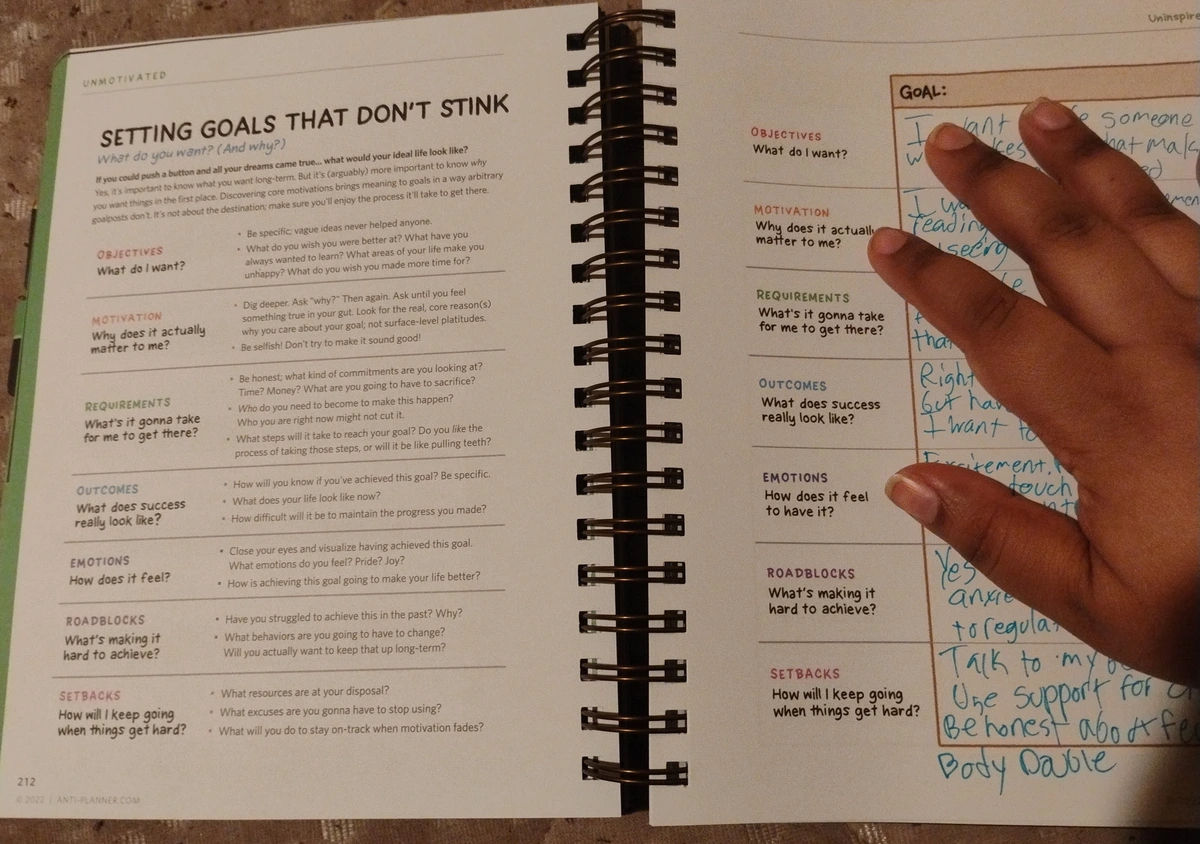 UNMOTIVATED
SETTING GOALS THAT DON'T STINK
What do you want? (And why?)
If you could push a button and all your dreams came true... what would your ideal life look like?
Yes, it's important to know what you want long-term. But it's (arguably) more important to know why
you want things in the first place. Discovering core motivations brings meaning to goals in a way arbitrary
goalposts don't. It's not about the destination; make sure you'll enjoy the process it'll take to get there.
OBJECTIVES
What do I want?
• Be specific; vague ideas never helped anyone.
• What do you wish you were better at? What have you
always wanted to learn? What areas of your life make you
unhappy? What do you wish you made more time for?
MOTIVATION
Why does it actually
matter to me?
• Dig deeper. Ask "why?" Then again. Ask until you feel
something true in your gut. Look for the real, core reason(s)
why you care about your goal; not surface-level platitudes.
• Be selfish! Don't try to make it sound good!
REQUIREMENTS
What's it gonna take
for me to get there?
• Be honest; what kind of commitments are you looking at?
Time? Money? What are you going to have to sacrifice?
• Who do you need to become to make this happen?
Who you are right now might not cut it.
• What steps will it take to reach your goal? Do you like the
process of taking those steps, or will it be like pulling teeth?
OUTCOMES
What does success
really look like?
• How will you know if you've achieved this goal? Be specific.
• What does your life look like now?
• How difficult will it be to maintain the progress you made?
EMOTIONS
How does it feel?
• Close your eyes and visualize having achieved this goal.
What emotions do you feel? Pride? Joy?
• How is achieving this goal going to make your life better?
ROADBLOCKS
What's making it
hard to achieve?
• Have you struggled to achieve this in the past? Why?
• What behaviors are you going to have to change?
Will you actually want to keep that up long-term?
SETBACKS
How will I keep going
when things get hard?
• What resources are at your disposal?
• What excuses are you gonna have to stop using?
• What will you do to stay on-track when motivation fades?
212
© 2022 | ANTI-PLANNER.COM
GOAL:
OBJECTIVES
What do I want?
I someone
MOTIVATION
Why does it actually
matter to me?
I
reading
seeing
REQUIREMENTS
What's it gonna take
for me to get there?
OUTCOMES
What does success
really look like?
Right
but
I want
EMOTIONS
How does it feel
to have it?
Excitement,
touch
ROADBLOCKS
What's making it
hard to achieve?
Yes
to
SETBACKS
How will I keep going
when things get hard?
Talk to my
Use support for
Be honest about
Body Double